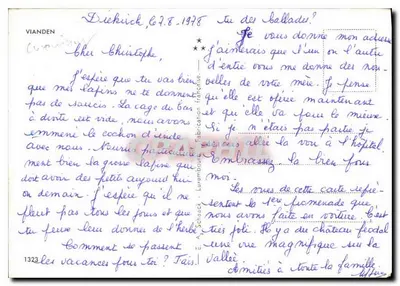 Diekirch, 27.8.1978
VIANDEN
Cher Christophe,
J'espère que tu vas bien
que mes lapins ne te donnent
pas de soucis. La cage du bas
à droite est vide, nous avons
emmené le cochon d'inde
avec nous. Nourris
bien la grosse lapine qui
doit avoir des petits aujourd'hui
ou demain. J'espère qu'il ne
pleut pas tous les jours et que
tu peux leur donner de l'herbe
Comment se passent
les vacances pour toi? Fais-
tu des ballades?
Je vous donne mon adresse
j'aimerais que l'un ou l'autre
d'entre vous me donne des nou-
velles de votre mère. Je pense
qu'elle est opérée maintenant
et qu'elle va pour le mieux.
Si je n'étais pas partie, je
la voir à l'hôpital.
Embrassez-la bien pour
moi.
Les vues de cette carte repré-
sentent le promenade que
nous avons faite en voiture. C'est
très joli. Il y a du château féodal
une vue magnifique sur la
vallée.
Amitiés à toute la famille
1323